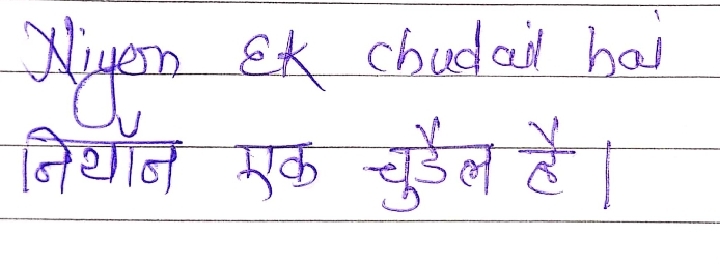 Niyon Ek chudail hai
नियॉन एक चुडैल है।